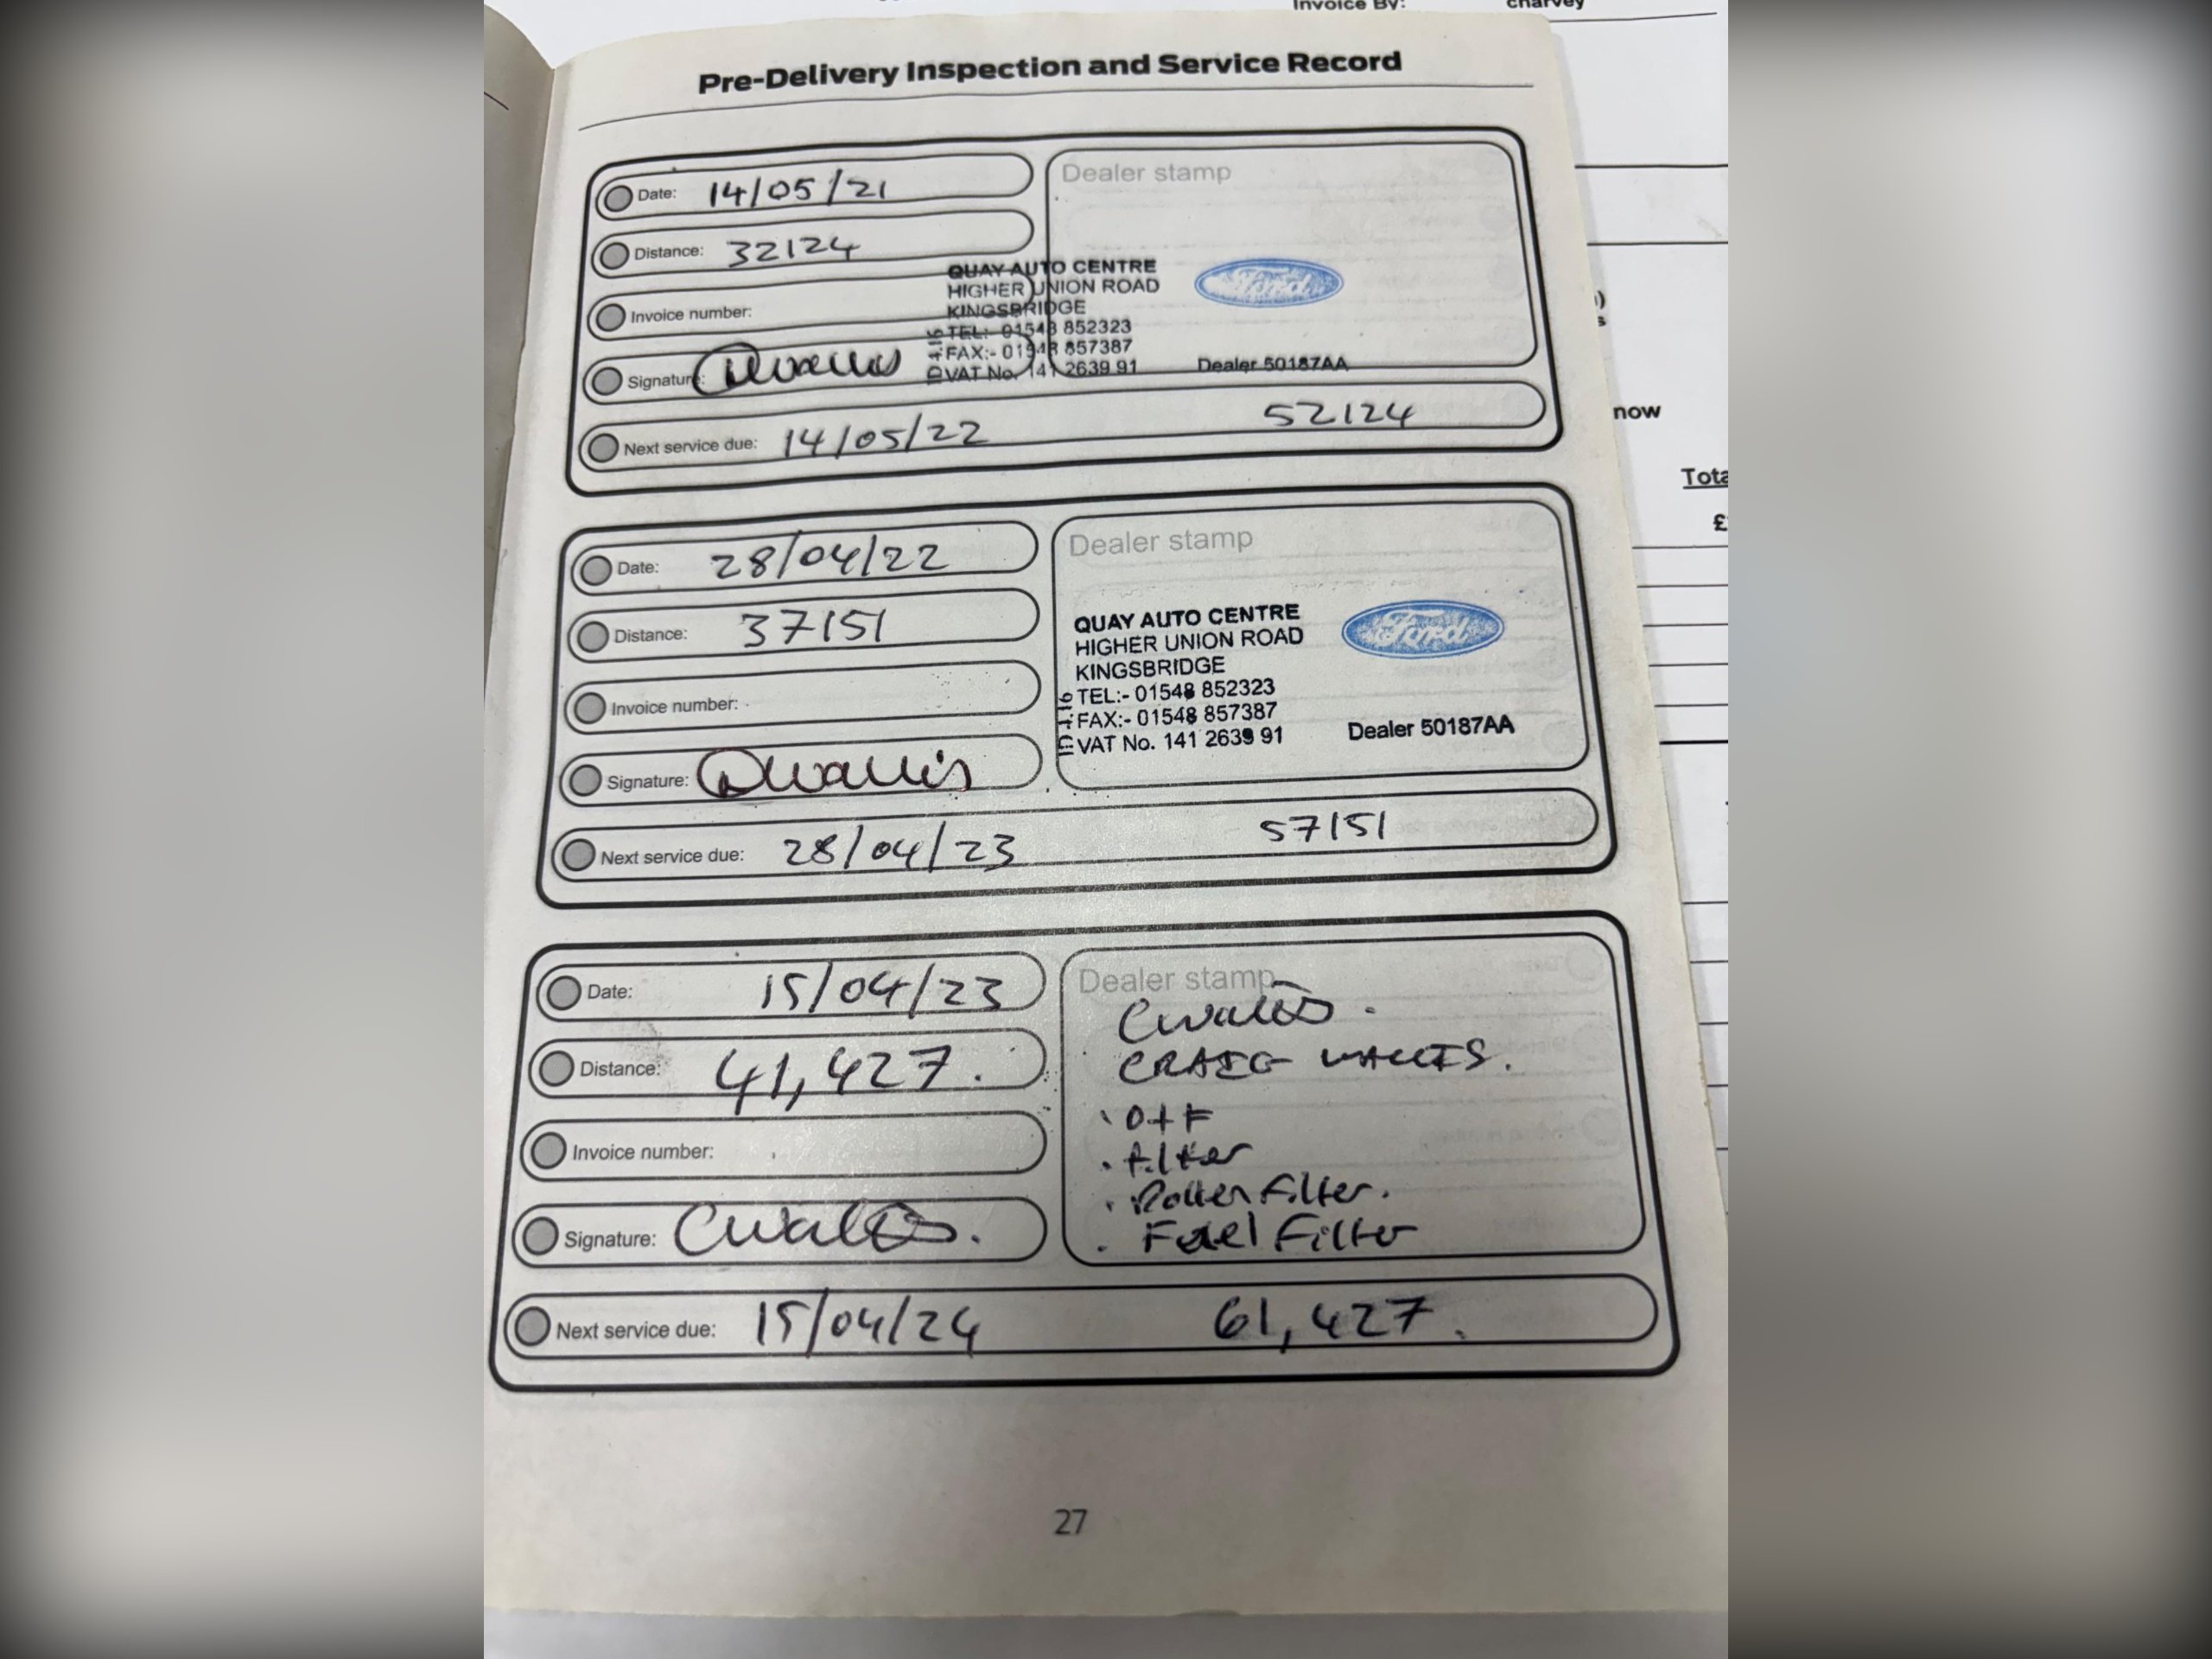 Invoice By: charvey
Pre-Delivery Inspection and Service Record
Date: 14/05/21
Distance: 32124
Invoice number:
Signature: Dwallis
Next service due: 14/05/22 52124
Dealer stamp
QUAY AUTO CENTRE
HIGHER UNION ROAD
KINGSBRIDGE
TEL:- 01548 852323
FAX:- 01548 857387
VAT No. 141 2639 91
Ford
Dealer 50187AA
Date: 28/04/22
Distance: 37151
Invoice number:
Signature: Dwallis
Next service due: 28/04/23 57151
Dealer stamp
QUAY AUTO CENTRE
HIGHER UNION ROAD
KINGSBRIDGE
TEL:- 01548 852323
FAX:- 01548 857387
VAT No. 141 2639 91
Ford
Dealer 50187AA
Date: 15/04/23
Distance: 41,427.
Invoice number:
Signature: Cwallis.
Next service due: 15/04/24 61,427.
Dealer stamp
Cwallis.
CRAIG WALLIS.
· O+F
· filter
· Pollen Filter.
· Fuel Filter
27
now
Tota
£